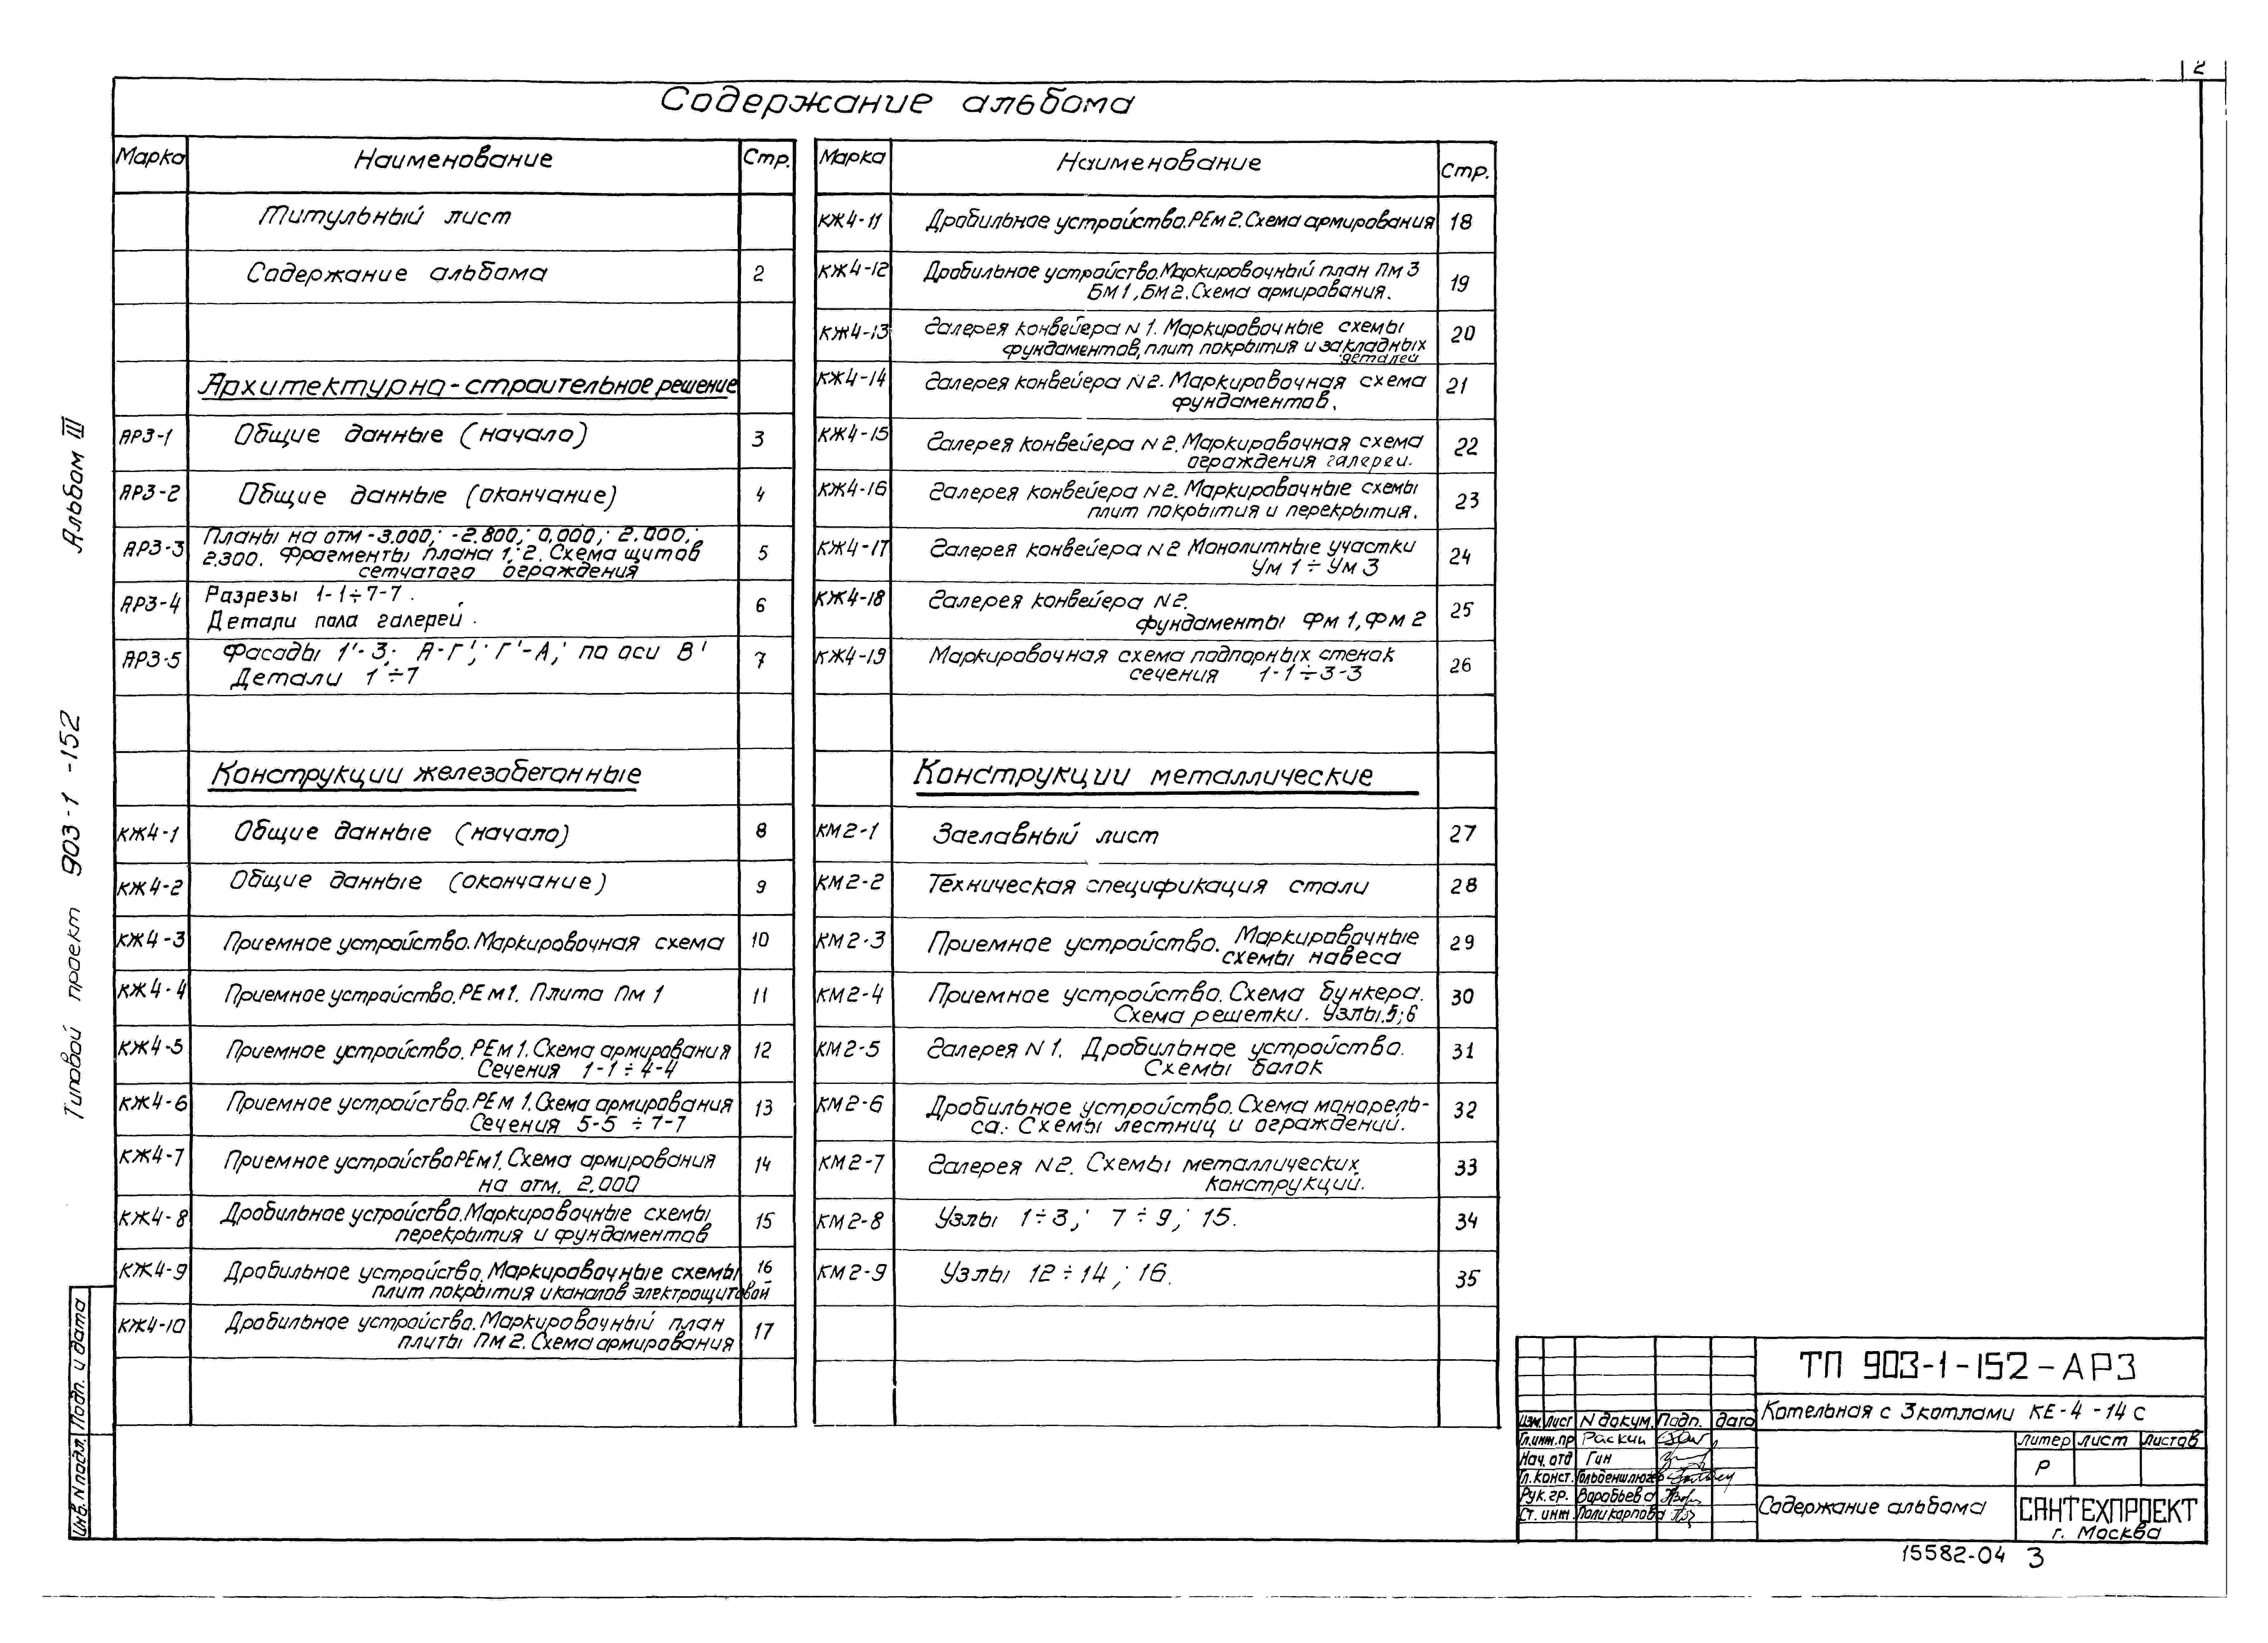 2
Содержание альбома
Альбом III
Типовой проект 903-1-152
Марка Наименование Стр.
Титульный лист
Содержание альбома 2
Архитектурно-строительное решение
АР3-1 Общие данные (начало) 3
АР3-2 Общие данные (окончание) 4
АР3-3 Планы на отм -3.000; -2.800; 0.000; 2.000;
2.300. Фрагменты плана 1; 2. Схема щитов 5
сетчатого ограждения
АР3-4 Разрезы 1-1÷7-7. 6
Детали пола галерей.
АР3-5 Фасады 1'-3; А-Г'; Г'-А; по оси В' 7
Детали 1÷7
Конструкции железобетонные
КЖ4-1 Общие данные (начало) 8
КЖ4-2 Общие данные (окончание) 9
КЖ4-3 Приемное устройство. Маркировочная схема 10
КЖ4-4 Приемное устройство. РЕм1. Плита Пм 1 11
КЖ4-5 Приемное устройство. РЕм1. Схема армирования 12
Сечения 1-1÷4-4
КЖ4-6 Приемное устройство. РЕм 1. Схема армирования 13
Сечения 5-5 ÷ 7-7
КЖ4-7 Приемное устройство РЕм1. Схема армирования 14
на отм. 2.000
КЖ4-8 Дробильное устройство. Маркировочные схемы 15
перекрытия и фундаментов
КЖ4-9 Дробильное устройство. Маркировочные схемы 16
плит покрытия и каналов электрощитовой
КЖ4-10 Дробильное устройство. Маркировочный план 17
плиты Пм 2. Схема армирования
Марка Наименование Стр.
КЖ4-11 Дробильное устройство. РЕм 2. Схема армирования 18
КЖ4-12 Дробильное устройство. Маркировочный план Пм 3 19
БМ1, БМ2. Схема армирования.
КЖ4-13 Галерея конвейера N 1. Маркировочные схемы 20
фундаментов, плит покрытия и закладных
деталей
КЖ4-14 Галерея конвейера N2. Маркировочная схема 21
фундаментов.
КЖ4-15 Галерея конвейера N2. Маркировочная схема 22
ограждения галереи.
КЖ4-16 Галерея конвейера N2. Маркировочные схемы 23
плит покрытия и перекрытия.
КЖ4-17 Галерея конвейера N2 Монолитные участки 24
Ум 1 ÷ Ум 3
КЖ4-18 Галерея конвейера N2. 25
фундаменты Фм 1, Фм 2
КЖ4-19 Маркировочная схема подпорных стенок 26
сечения 1-1÷3-3
Конструкции металлические
КМ2-1 Заглавный лист 27
КМ2-2 Техническая спецификация стали 28
КМ2-3 Приемное устройство. Маркировочные 29
схемы навеса
КМ2-4 Приемное устройство. Схема бункера. 30
Схема решетки. Узлы.5;6
КМ2-5 Галерея N1. Дробильное устройство. 31
Схемы балок
КМ2-6 Дробильное устройство. Схема монорель- 32
са. Схемы лестниц и ограждений.
КМ2-7 Галерея N2. Схемы металлических 33
конструкций.
КМ2-8 Узлы 1÷3; 7÷9; 15. 34
КМ2-9 Узлы 12÷14; 16. 35
Инв. N подл. Подп. и дата
ТП 903-1-152-АР3
Котельная с 3 котлами КЕ-4-14 с
Изм. Лист N докум. Подп. Дата
Гл.инж.пр Раскин
Нач. отд Гин
Гл. конст. Гольденшлюгер
Рук. гр. Воробьева
Ст. инж Поликарпова
Литер Лист Листов
Р
Содержание альбома
САНТЕХПРОЕКТ
г. Москва
15582-04 3